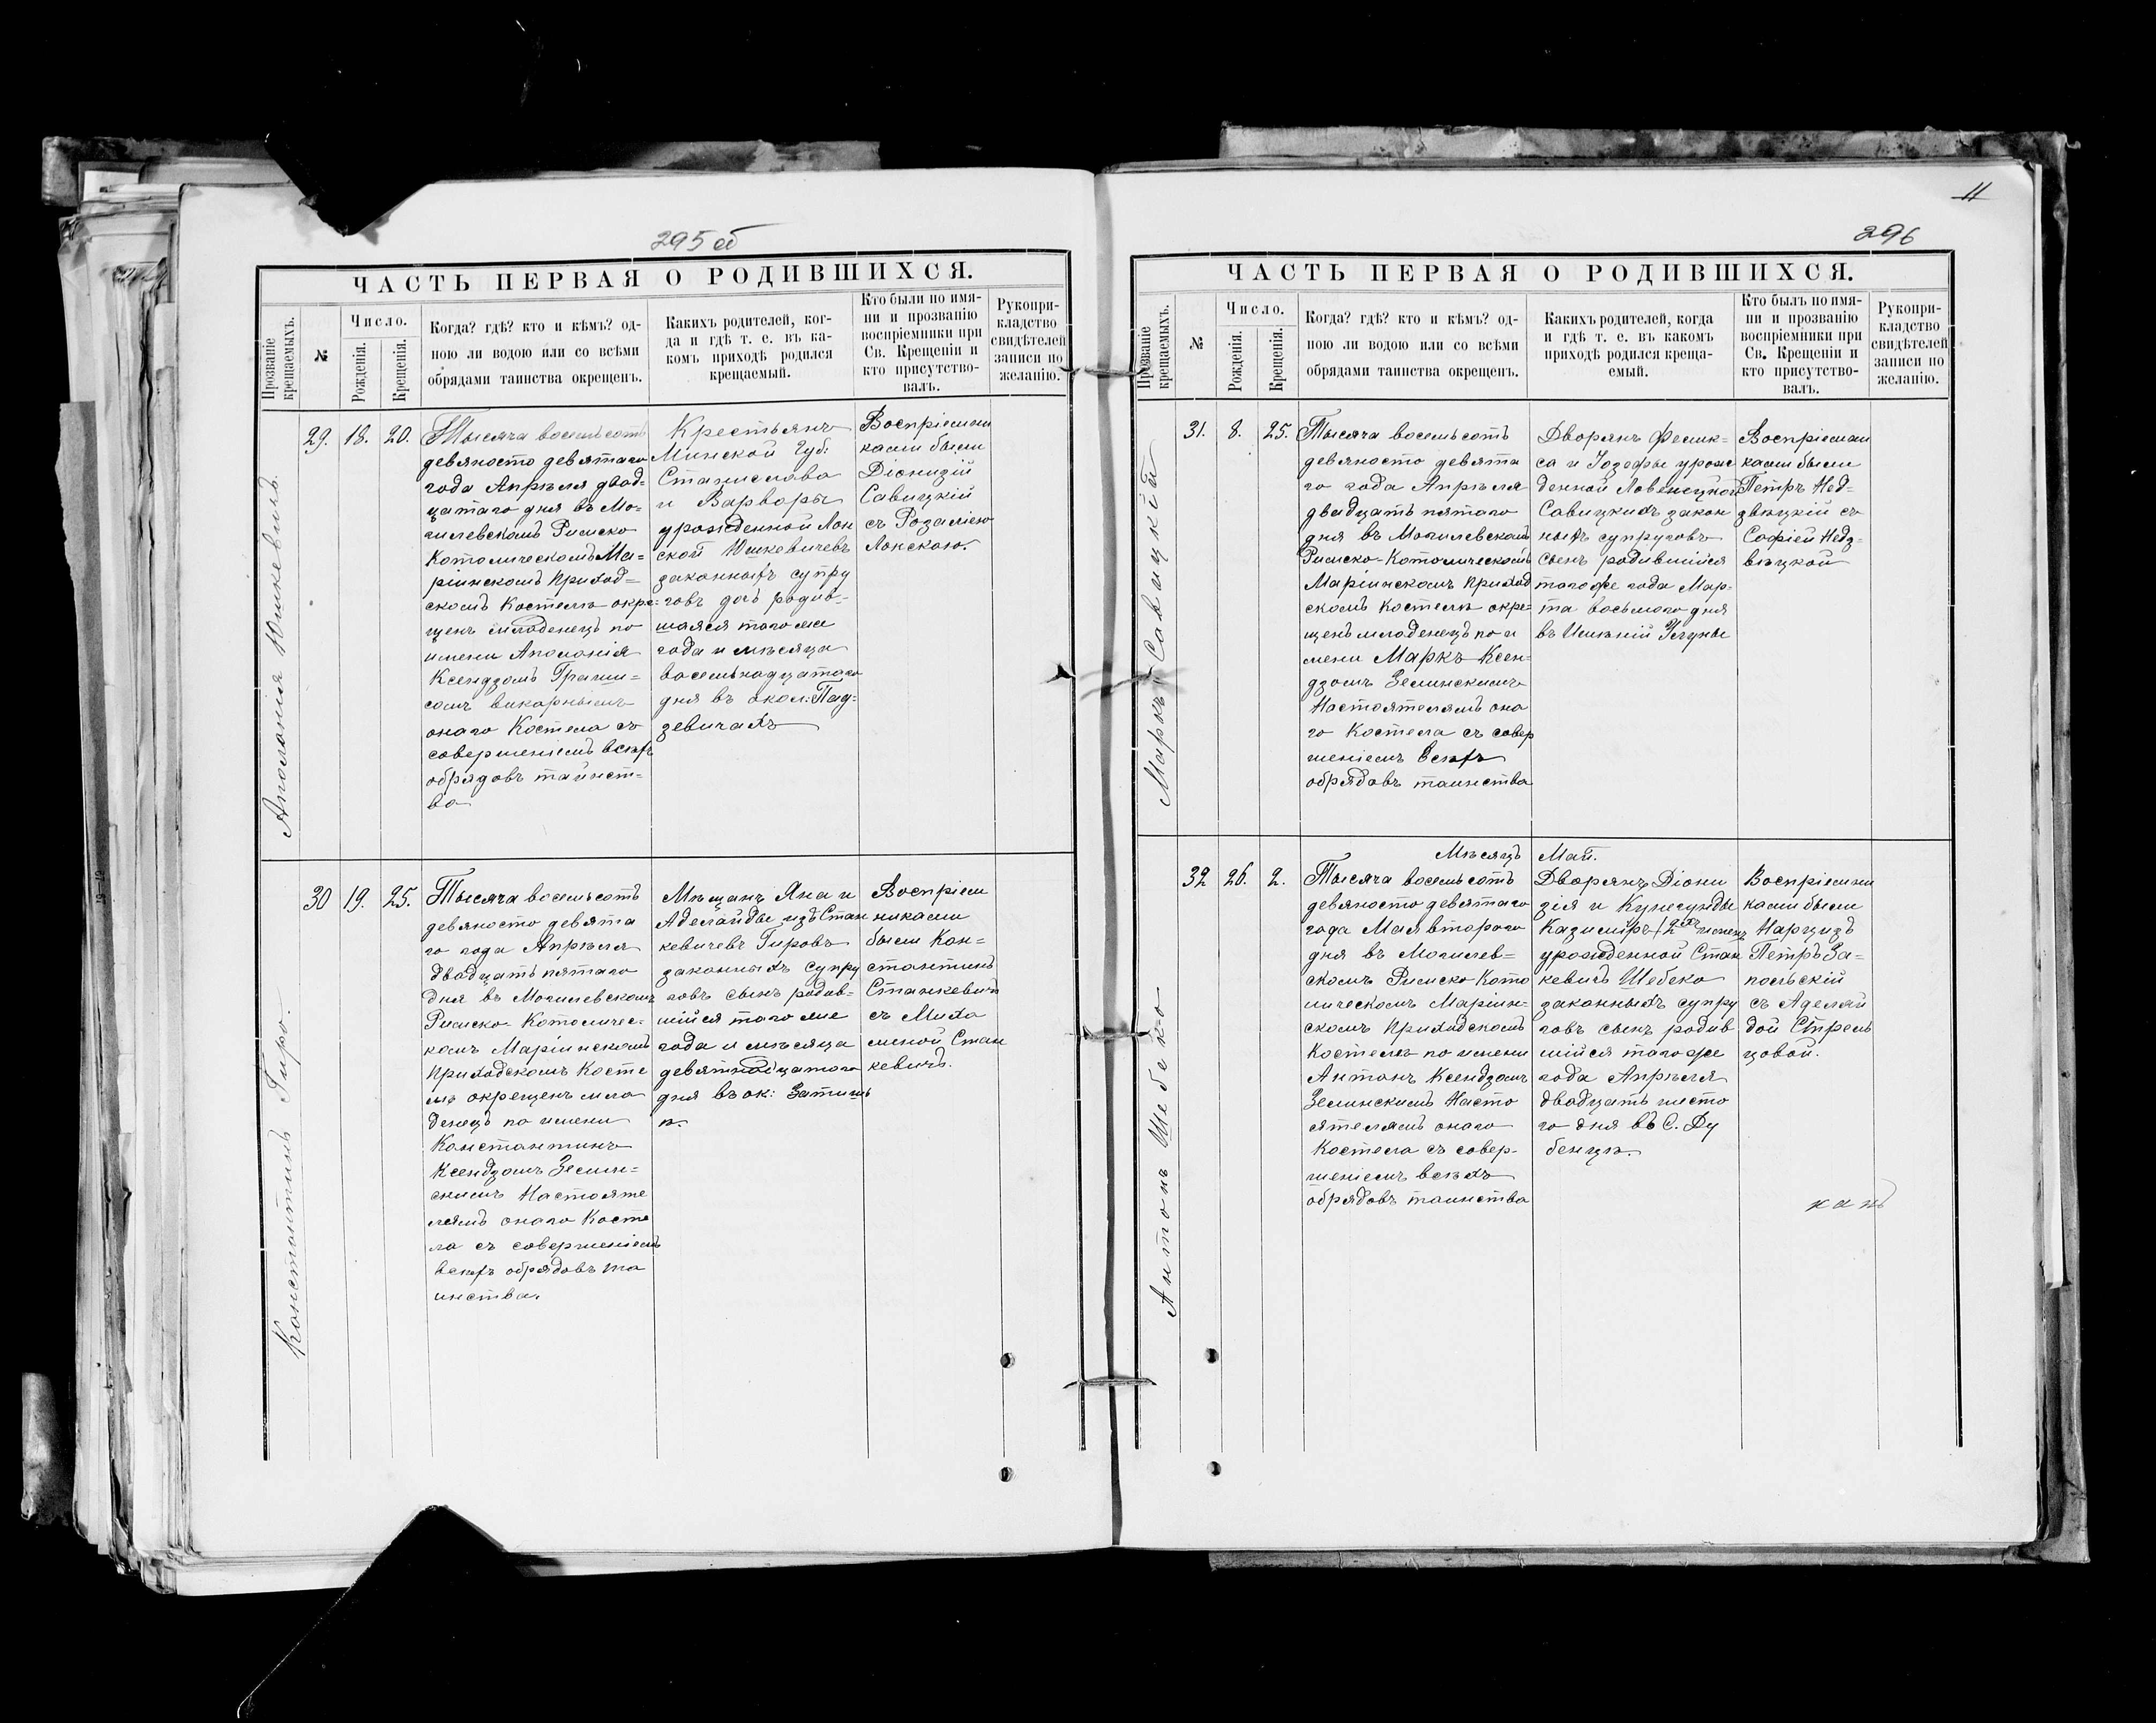 295 об
ЧАСТЬ ПЕРВАЯ О РОДИВШИХСЯ.
Прозваніе крещаемыхъ.
№
Число.
Рожденія.
Крещенія.
Когда? гдѣ? кто и кѣмъ? од-
ною ли водою или со всѣми
обрядами таинства окрещенъ.
Какихъ родителей, ког-
да и гдѣ т. е. въ ка-
комъ приходѣ родился
крещаемый.
Кто были по имя-
ни и прозванію
воспріемники при
Св. Крещеніи и
кто присутство-
валъ.
Рукопри-
кладство
свидѣтелей
записи по
желанію.
Аполонія Юшкевичъ
29.
18.
20.
Тысяча восемьсотъ
девяносто девятаго
года Апрѣля двад-
цатаго дня въ Мо-
гилевскомъ Римско
Католическомъ Ма-
ріинскомъ приход-
скомъ Костелѣ окре-
щенъ младенецъ по
имени Аполонія
Ксендзомъ
викарнымъ
онаго Костела съ
совершеніемъ всѣхъ
обрядовъ таинст-
ва
Крестьянъ
Минской Губ:
Станислава
и Варвары
урожденной Лон
ской Юшкевичевъ
законныхъ супру
говъ дочь родив-
шаяся того же
года и мѣсяца
восемьнадцатаго
дня въ окол: Пад-
зевичахъ
Воспріемни
ками были
Діонизій
Савицкій
съ Розаліею
Лонскою.
Константинъ Гиро.
30
19.
25.
Тысяча восемьсотъ
девяносто девята
го года Апрѣля
двадцать пятаго
дня въ Могилевскомъ
Римско-Католичес-
комъ Маріинскомъ
приходскомъ Косте
лѣ окрещенъ мла
денецъ по имени
Константинъ
Ксендзомъ Земин-
скимъ Настояте
лемъ онаго Косте
ла съ совершеніемъ
всѣхъ обрядовъ та
инства.
Мѣщанъ Яна и
Аделайды изъ Стан
кевичевъ Гировъ
законныхъ супру
говъ сынъ родив-
шійся того же
года и мѣсяца
девятнадцатаго
дня въ ок: Затишь
ѣ.
Воспріем
никами
были Кон-
стантинъ
Станкевичъ
съ Миха
линой Стан
кевичъ.
11
296
ЧАСТЬ ПЕРВАЯ О РОДИВШИХСЯ.
Прозваніе крещаемыхъ.
№
Число.
Рожденія.
Крещенія.
Когда? гдѣ? кто и кѣмъ? од-
ною ли водою или со всѣми
обрядами таинства окрещенъ.
Какихъ родителей, когда
и гдѣ т. е. въ какомъ
приходѣ родился креща-
емый.
Кто былъ по имя-
ни и прозванію
воспріемники при
Св. Крещеніи и
кто присутство-
валъ.
Рукопри-
кладство
свидѣтелей
записи по
желанію.
Маркъ Савицкій
31.
8.
25.
Тысяча восемьсотъ
девяносто девята
го года Апрѣля
двадцать пятаго
дня въ Могилевскомъ
Римско-Католическомъ
Маріинскомъ приход
скомъ Костелѣ окре-
щенъ младенецъ по и
мени Маркъ Ксен-
дзомъ Земинскимъ
Настоятелямъ она
го Костела съ совер
шеніемъ всѣхъ
обрядовъ таинства
Дворянъ Фелик-
са и Іозефы урож
денной
Савицкихъ закон
ныхъ супруговъ
сынъ родившійся
тогоже года Мар-
та восьмого дня
въ Имѣніи
Воспріемни
ками были
Петръ Нед-
звѣцкій съ
Софіей Недз-
вѣцкой
Мѣсяцъ Май.
Антонъ Шебеко
32
26.
2.
Тысяча восемьсотъ
девяносто девятаго
года Мая второго
дня въ Могилев-
скомъ Римско Като
лическомъ Маріин-
скомъ приходскомъ
Костелѣ по имени
Антонъ Ксендзомъ
Земинскимъ Насто
ятелямъ онаго
Костела съ совер-
шеніемъ всѣхъ
обрядовъ таинства
Дворянъ Діони
зія и Кунегунды
Казиміръ (2хъ именъ
урожденной Стан
кевичъ Шебеко
законныхъ супру
говъ сынъ родив
шійся тогоже
года Апрѣля
двадцать шесто
го дня въ С. Ду
бенцѣ.
Воспріемни
ками были
Нарцизъ
Петръ За-
польскій
съ Аделаи
дой Стрель
цовой.